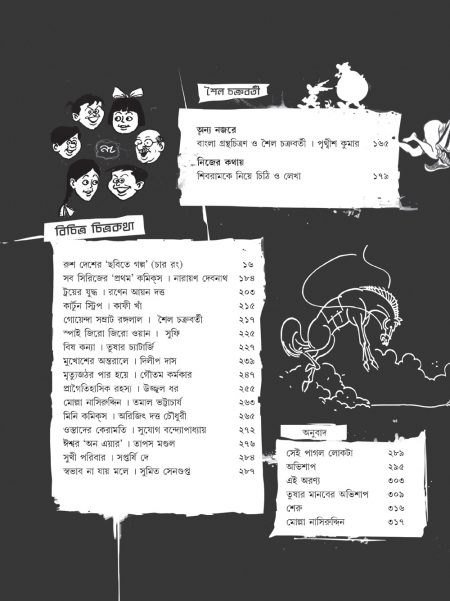 শৈল চক্রবর্তী
অন্য নজরে
বাংলা গ্রন্থচিত্রণ ও শৈল চক্রবর্তী । পৃথ্বীশ কুমার ১৬৫
নিজের কথায়
শিবরামকে নিয়ে চিঠি ও লেখা ১৭৯
বিচিত্র চিত্রকথা
রুশ দেশের 'ছবিতে গল্প' (চার রং) ১৬
সব সিরিজের 'প্রথম' কমিক্‌স । নারায়ণ দেবনাথ ১৮৪
ট্রয়ের যুদ্ধ । রণেন আয়ন দত্ত ২০৩
কার্টুন স্ট্রিপ । কাফী খাঁ ২১৫
গোয়েন্দা সম্রাট রঙ্গলাল । শৈল চক্রবর্তী ২১৭
স্পাই জিরো জিরো ওয়ান । সুফি ২২৫
বিষ কন্যা । তুষার চ্যাটার্জি ২২৭
মুখোশের অন্তরালে । দিলীপ দাস ২৩৯
মৃত্যুজঠর পার হয়ে । গৌতম কর্মকার ২৪৭
প্রাগৈতিহাসিক রহস্য । উজ্জ্বল ধর ২৫৫
মোল্লা নাসিরুদ্দিন । তমাল ভট্টাচার্য ২৬৩
মিনি কমিক্‌স । অরিজিৎ দত্ত চৌধুরী ২৬৫
ওস্তাদের কেরামতি । সুযোগ বন্দ্যোপাধ্যায় ২৭২
ঈশ্বর 'অন এয়ার' । তাপস মণ্ডল ২৭৬
সুখী পরিবার । সপ্তর্ষি দে ২৮৪
স্বভাব না যায় মলে । সুমিত সেনগুপ্ত ২৮৭
অনুবাদ
সেই পাগল লোকটা ২৮৯
অভিশাপ ২৯৫
এই অরণ্য ৩০৩
তুষার মানবের অভিশাপ ৩০৯
শেরু ৩১৬
মোল্লা নাসিরুদ্দিন ৩১৭